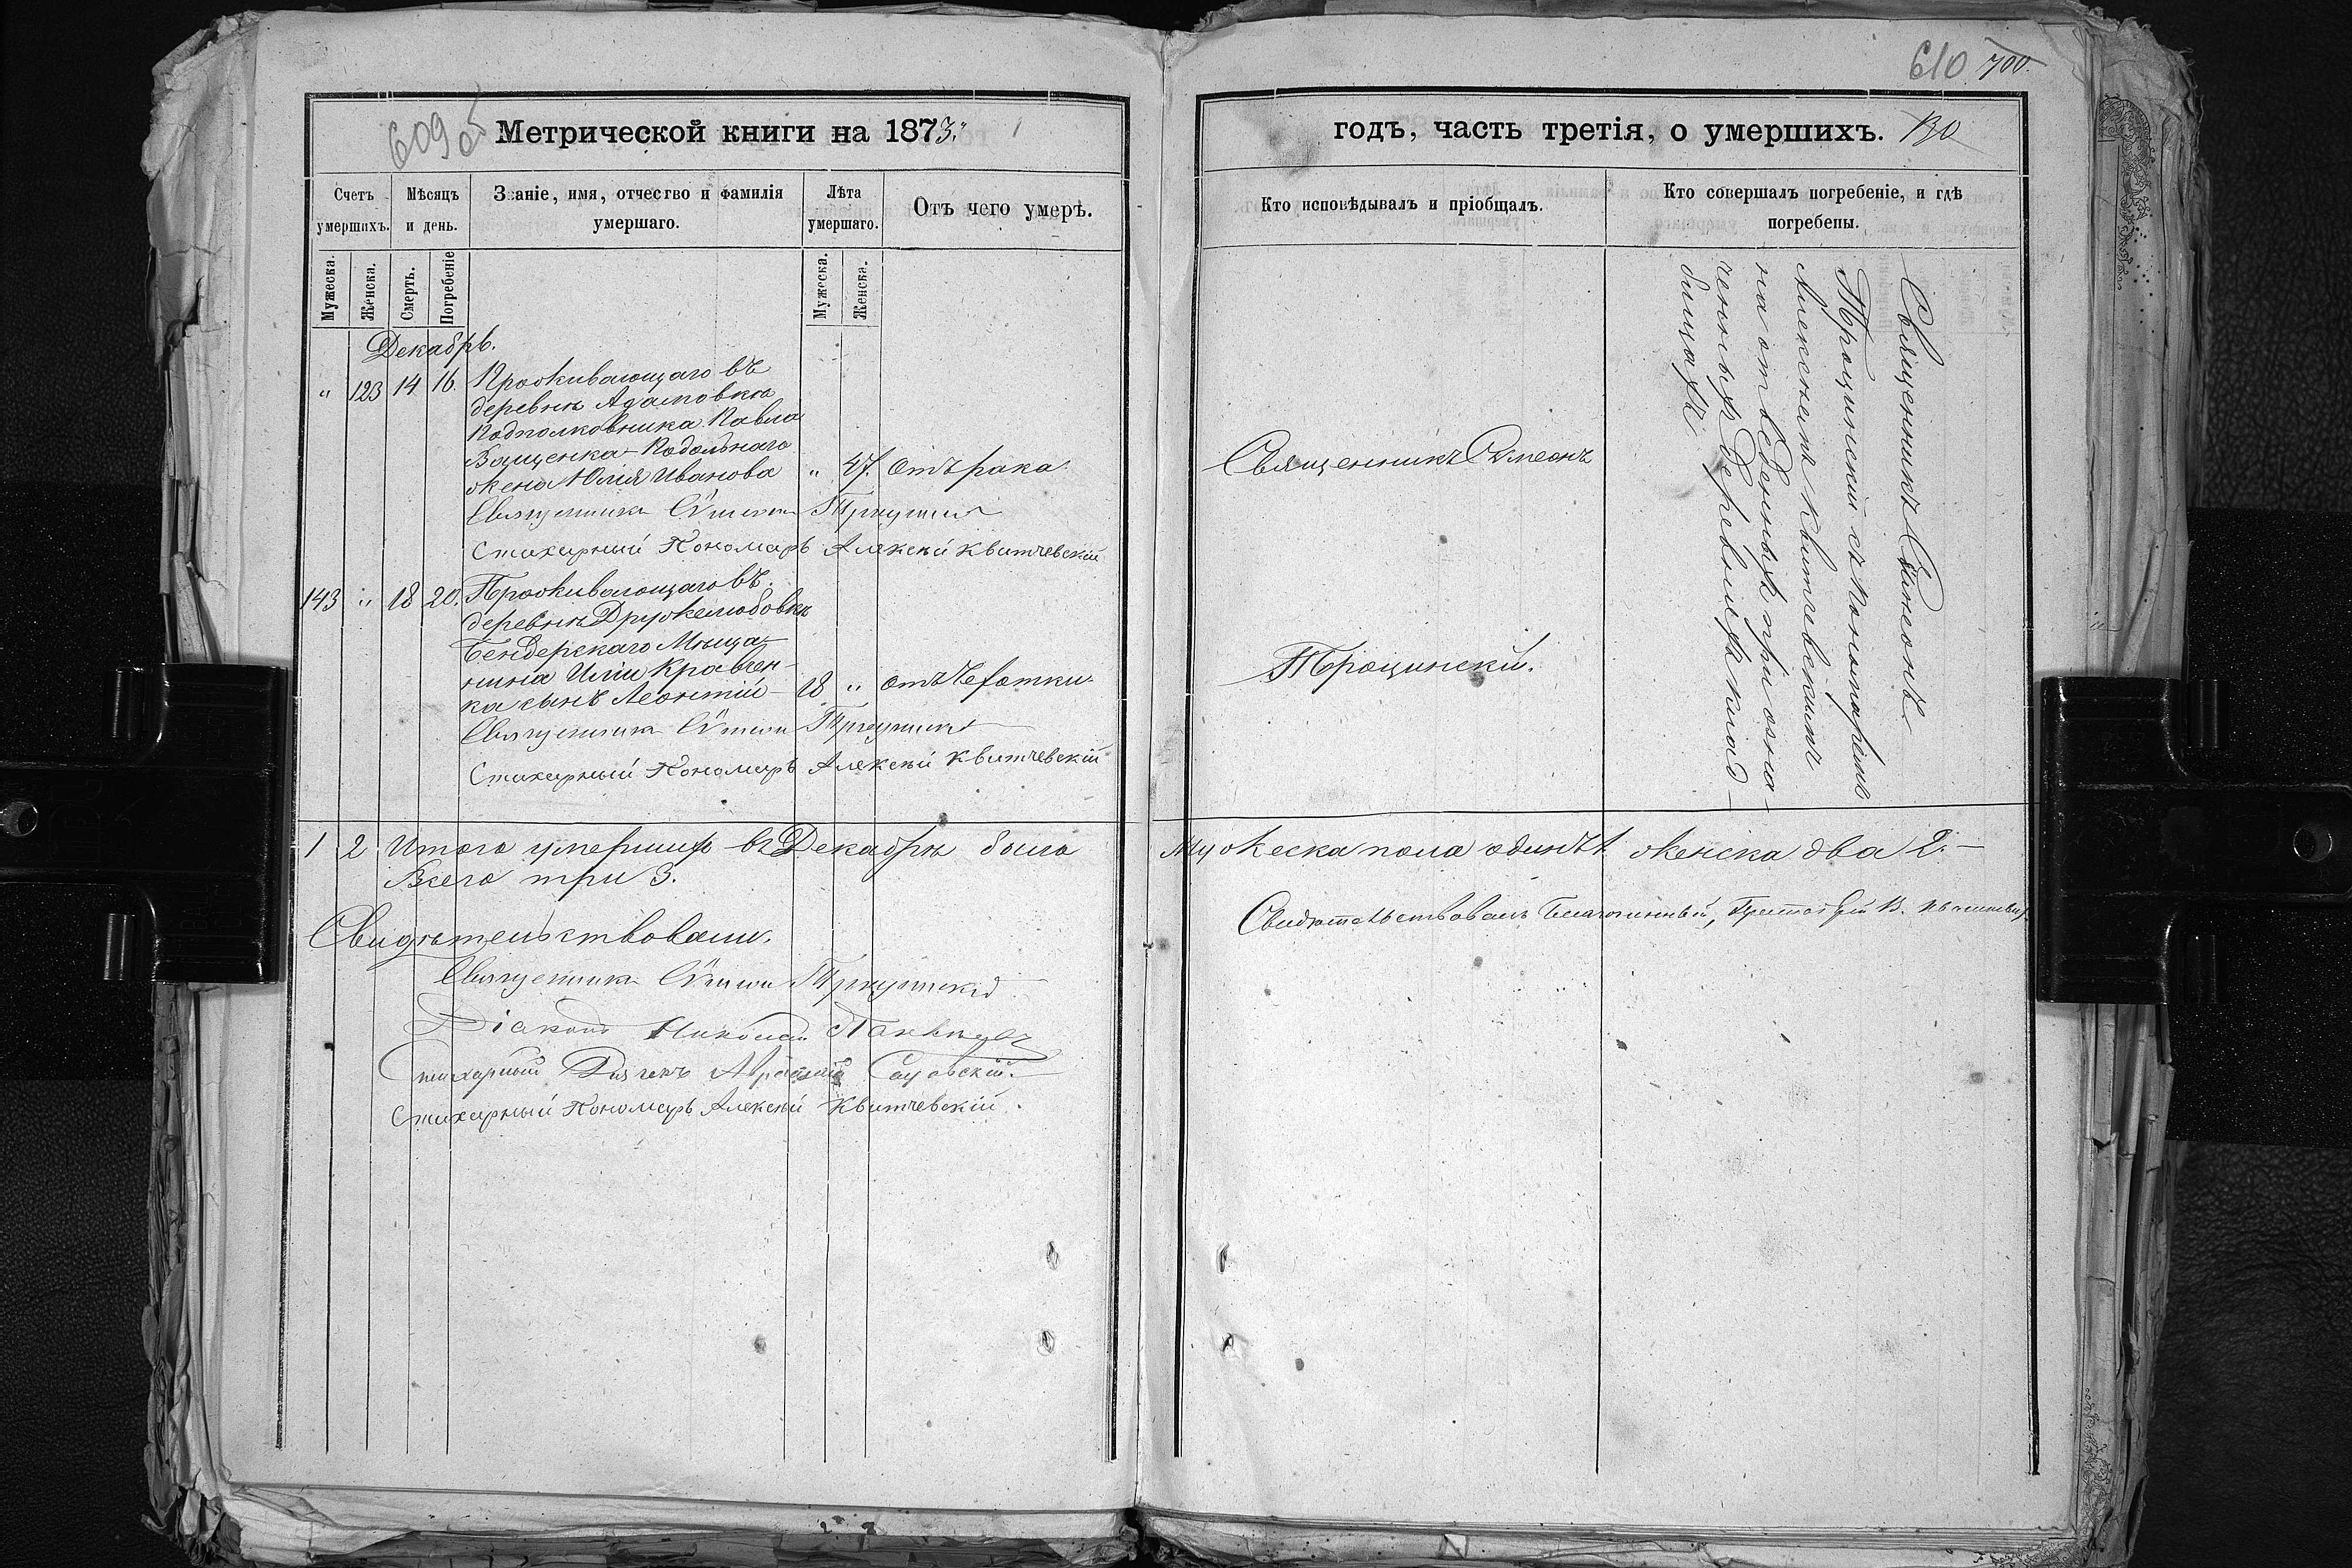 609 об
Метрической книги на 1873.
Счетъ умершихъ.
Мѣсяцъ и день.
Званіе, имя, отчество и фамилія умершаго.
Лѣта умершаго.
Отъ чего умеръ.
Мужеска.
Женска.
Смерть.
Погребеніе
Мужеска.
Женска.
Декабрь.
" 123 14 16. Проживающаго въ
деревнѣ Адамовкѣ
Подполковника Павла
Ващенка-Подольнаго
жена Юлія Иванова " 47. отъ рака
Священникъ Сѵмеонъ Трощинскій
Стихарный Пономарь Алексѣй Квитчевскій
143 " 18 20. Проживающаго въ
деревнѣ Дружелюбовкѣ
Бендерскаго Мѣща-
нина Иліи Кравчен-
ка сынъ Леонтій- 18 " отъ чехотки
Священникъ Сѵмеонъ Трощинскій
Стихарный Пономарь Алексѣй Квитчевскій
1 2 Итого умершихъ въ Декабрѣ было
Всего три 3.
Свидѣтельствовали.
Священникъ Сѵмеонъ Трощинскій
Діаконъ Николай
Стихарный Дьячекъ
Стихарный Пономарь Алексѣй Квитчевскій.
610 700.
годъ, часть третія, о умершихъ. 130
Кто исповѣдывалъ и пріобщалъ.
Кто совершалъ погребеніе, и гдѣ погребены.
Священникъ Сѵмеонъ
Трощинскій.
Священникъ Сѵмеонъ
Трощинскій съ Пономаремъ
Алексѣемъ Квитчевскимъ
на отведенныхъ при озна-
ченныхъ деревняхъ клад-
бищахъ
Мужеска пола одинъ 1. женска два 2.-
Свидѣтельствовалъ Благочинный, В.